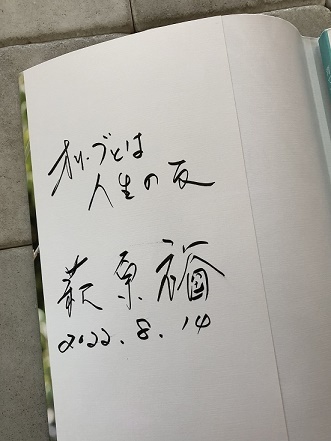 オリーブとは
人生の友
萩原
2022.8.14